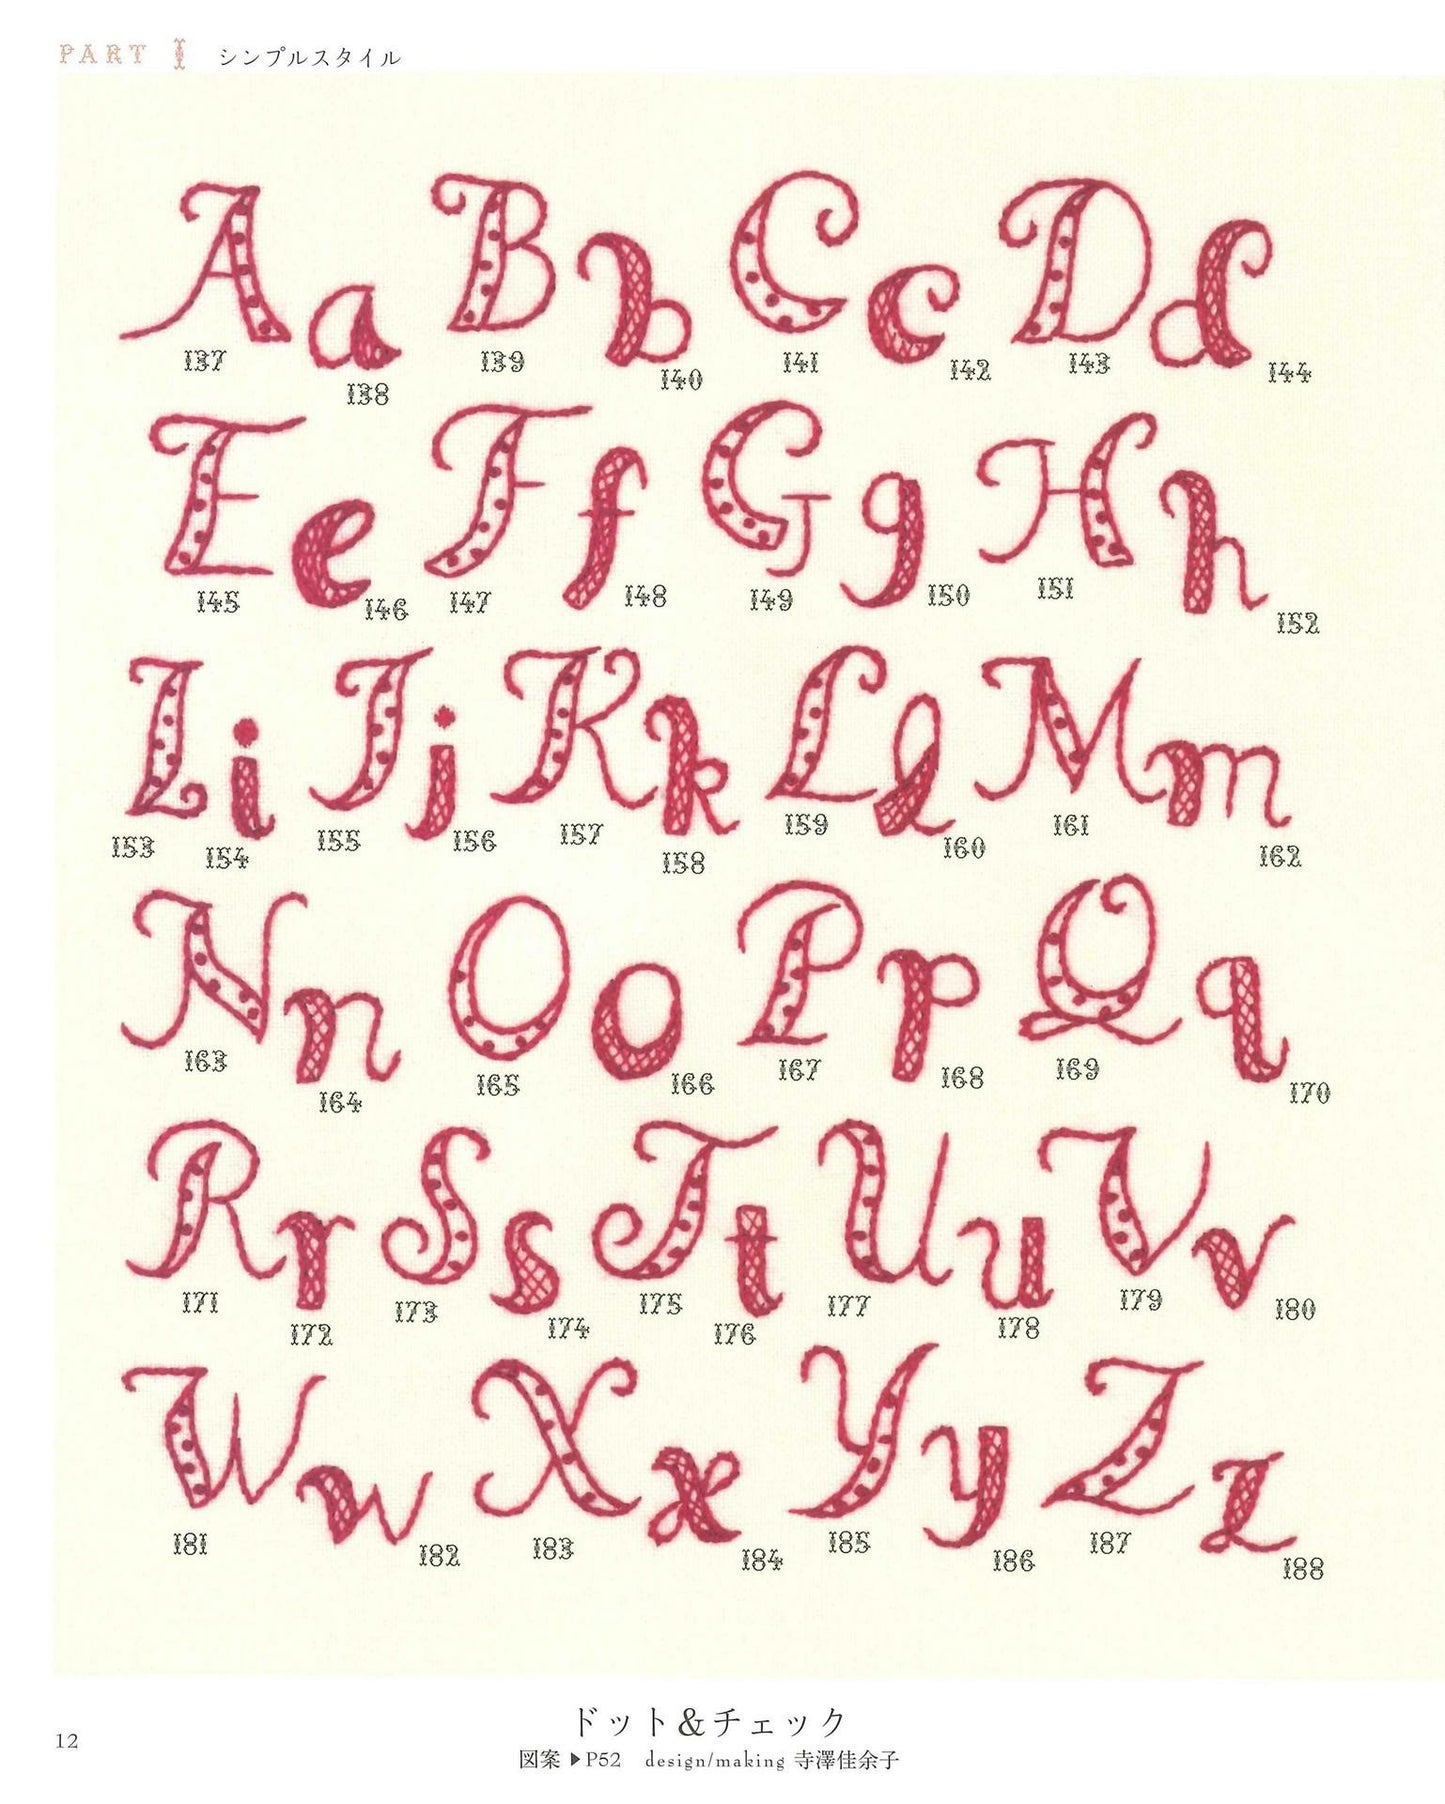 PART I シンプルスタイル
A a B b C c D d
137 138 139 140 141 142 143 144
E e F f G g H h
145 146 147 148 149 150 151 152
I i J j K k L l M m
153 154 155 156 157 158 159 160 161 162
N n O o P p Q q
163 164 165 166 167 168 169 170
R r S s T t U u V v
171 172 173 174 175 176 177 178 179 180
W w X x Y y Z z
181 182 183 184 185 186 187 188
ドット&チェック
12
図案 ▶P52 design/making 寺澤佳余子